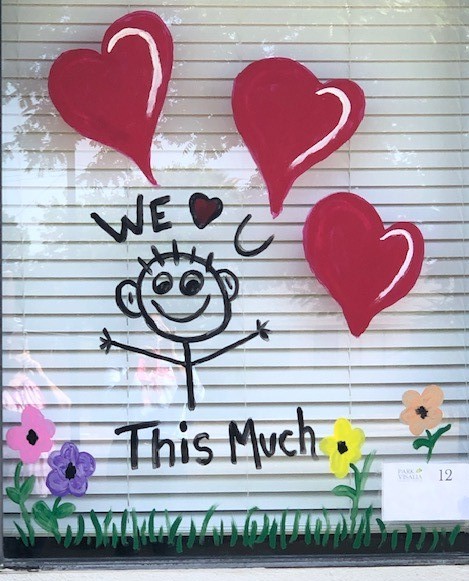 WE ❤ U
This Much
PARK
VISALIA
12